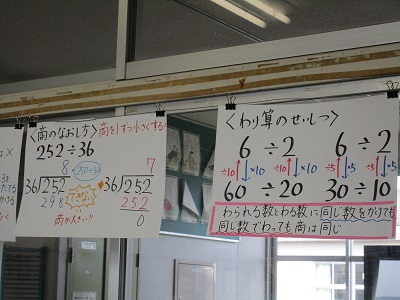 〈商のなおし方〉商を1ずつ小さくする!
252÷36
8
36)252
298
商が大きい!!
7
36)252
252
0
〈わり算のせいしつ〉
6÷2
÷10 ×10 ÷10 ×10
60÷20
6÷2
÷5 ×5 ÷5 ×5
30÷10
わられる数とわる数に同じ数をかけても
同じ数でわっても商は同じ